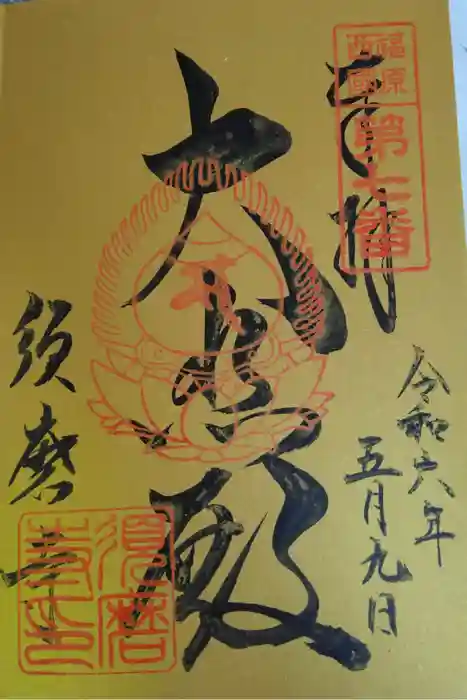 奉拝
福原
西國
第七番
大悲殿
令和六年
五月九日
須磨寺
須磨寺印